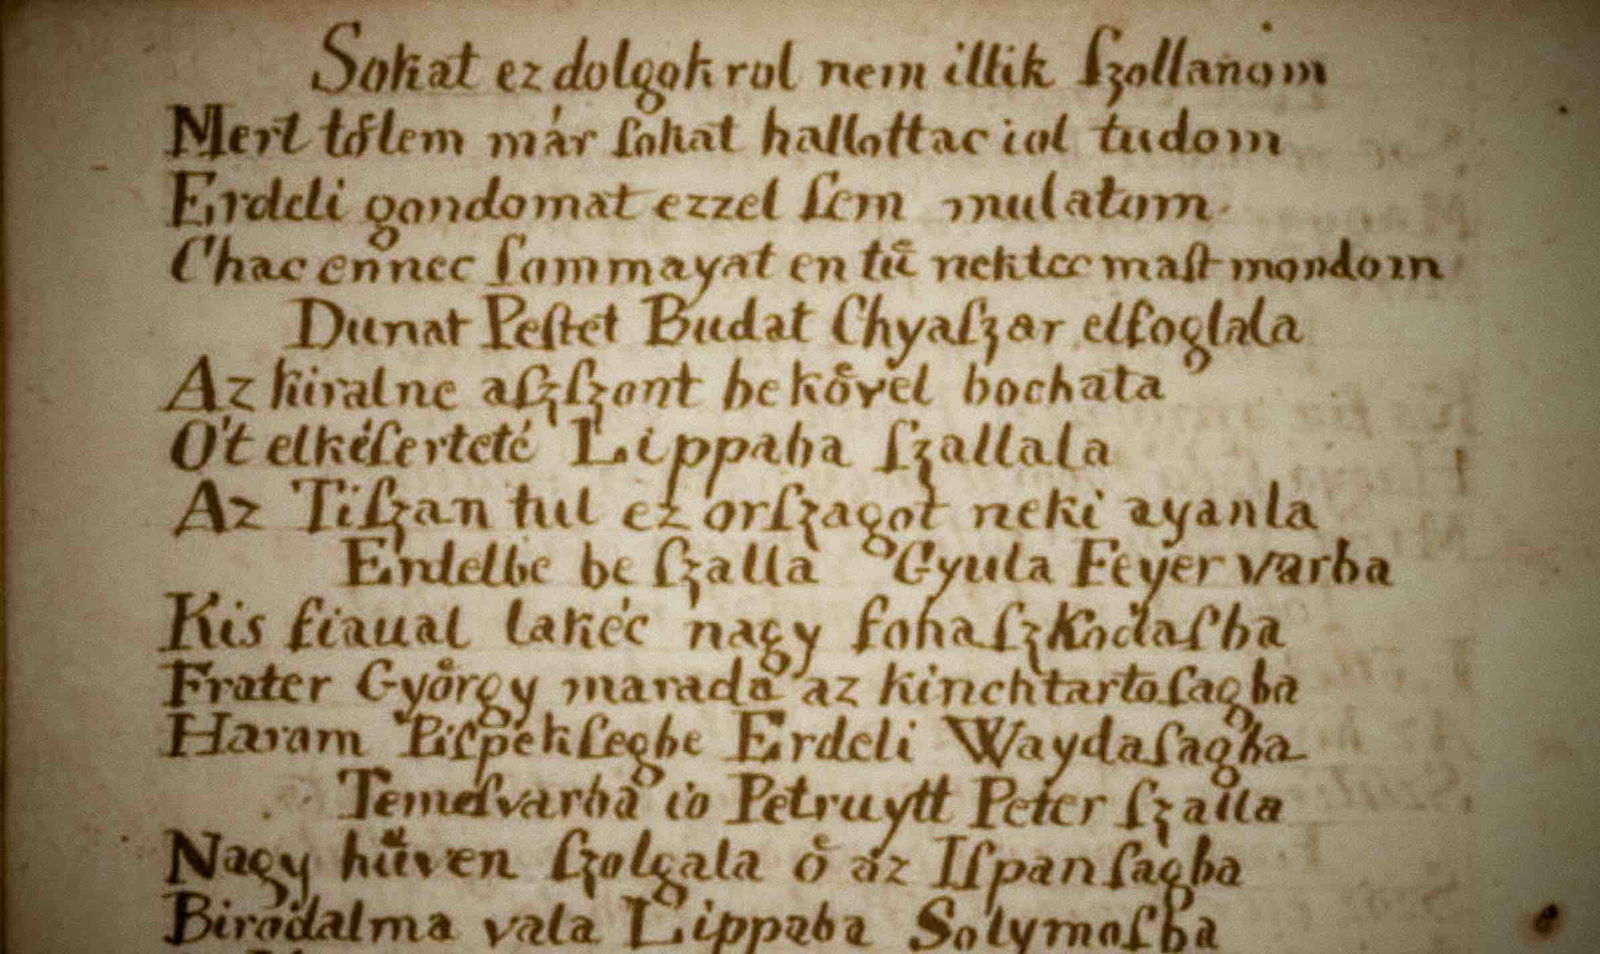 Sokat ez dolgokrol nem illik ſzollanom
Mert tőlem már ſokat hallottac iol tudom
Erdeli gondomat ezzel ſem mulatom.
Chac ennec ſommayat en tű nektec maſt mondom
Dunat Peſtet Budat Chyaſzar elfoglala
Az kiralne aſzſzont be kővel bochata
Ot elkéſerteté Lippaba ſzallala
Az Tiſzan tul ez orſzagot neki ayanla
Erdelbe be ſzalla Gyula Feyer varba
Kis fiaual lakéc nagy fohaſzkodaſba
Frater Győrgy marada az kinchtartoſagba
Harom Piſpekſegbe Erdeli Waydaſagba
Temeſvarba io Petruytt Peter ſzalla
Nagy hűven ſzolgala ő az Iſpanſagba
Birodalma vala Lippaba Solymoſba